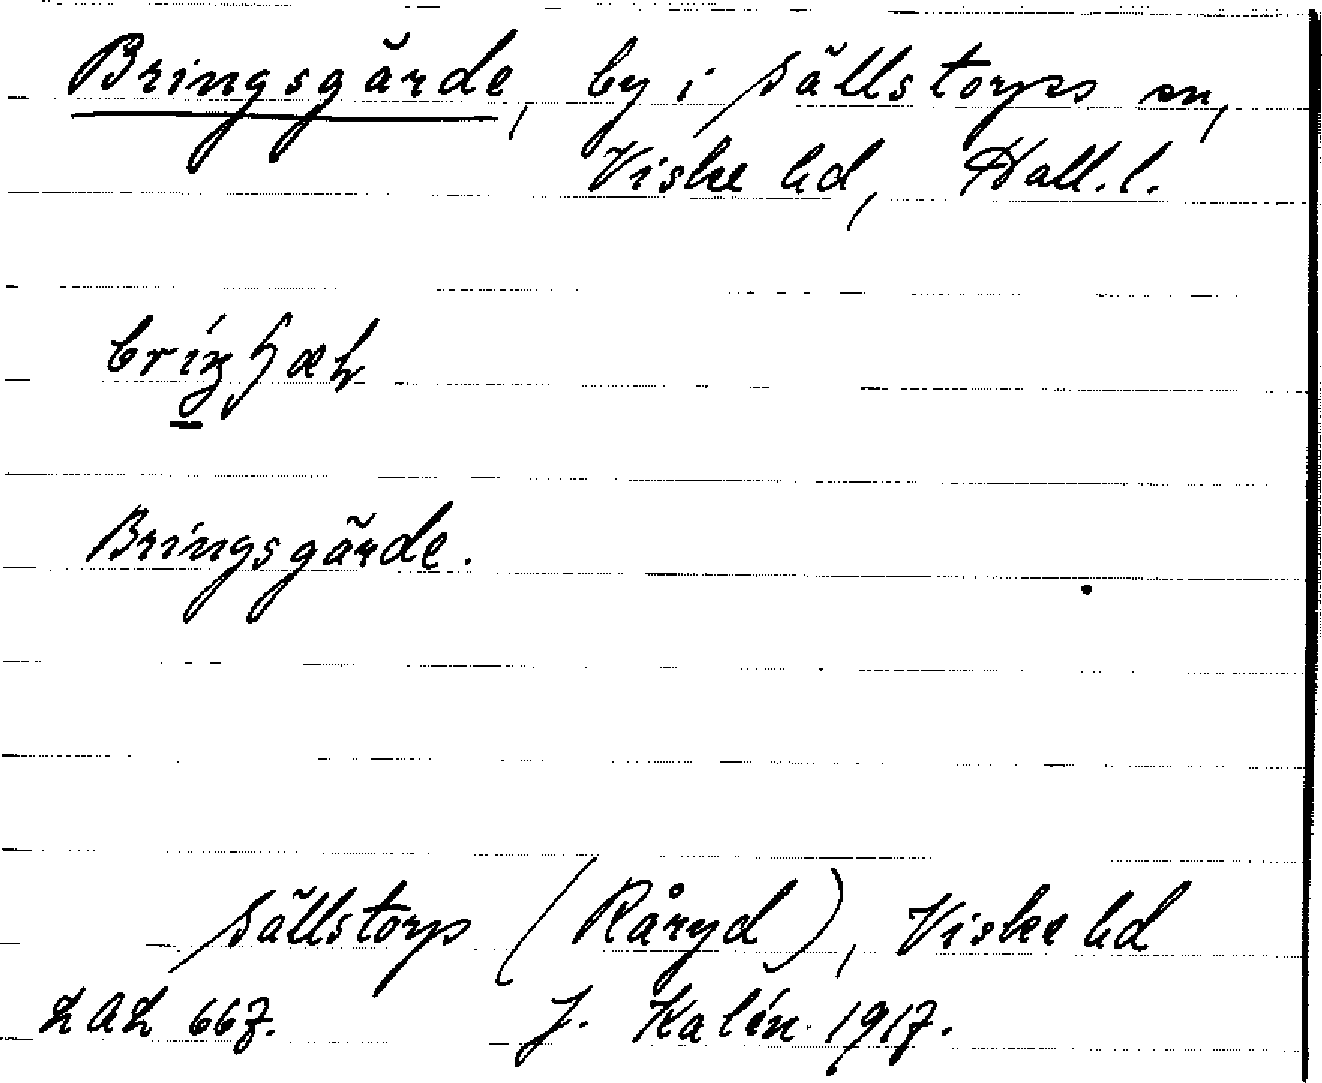 Bringsgärde, by i Sällstorps sn,
Viske hd, Hall. l.
Bringsgärde.
Sällstorp (Råryd), Viske hd
LAL 667. J. Kalén 1917.